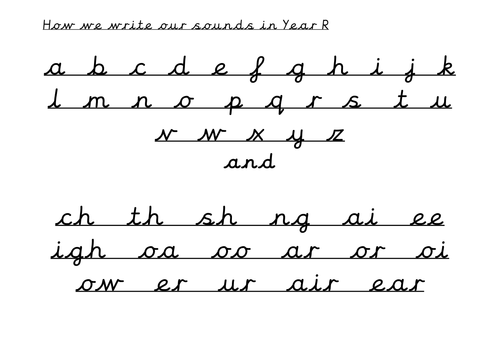 How we write our sounds in Year R
a b c d e f g h i j k
l m n o p q r s t u
v w x y z
and
ch th sh ng ai ee
igh oa oo ar or oi
ow er ur air ear